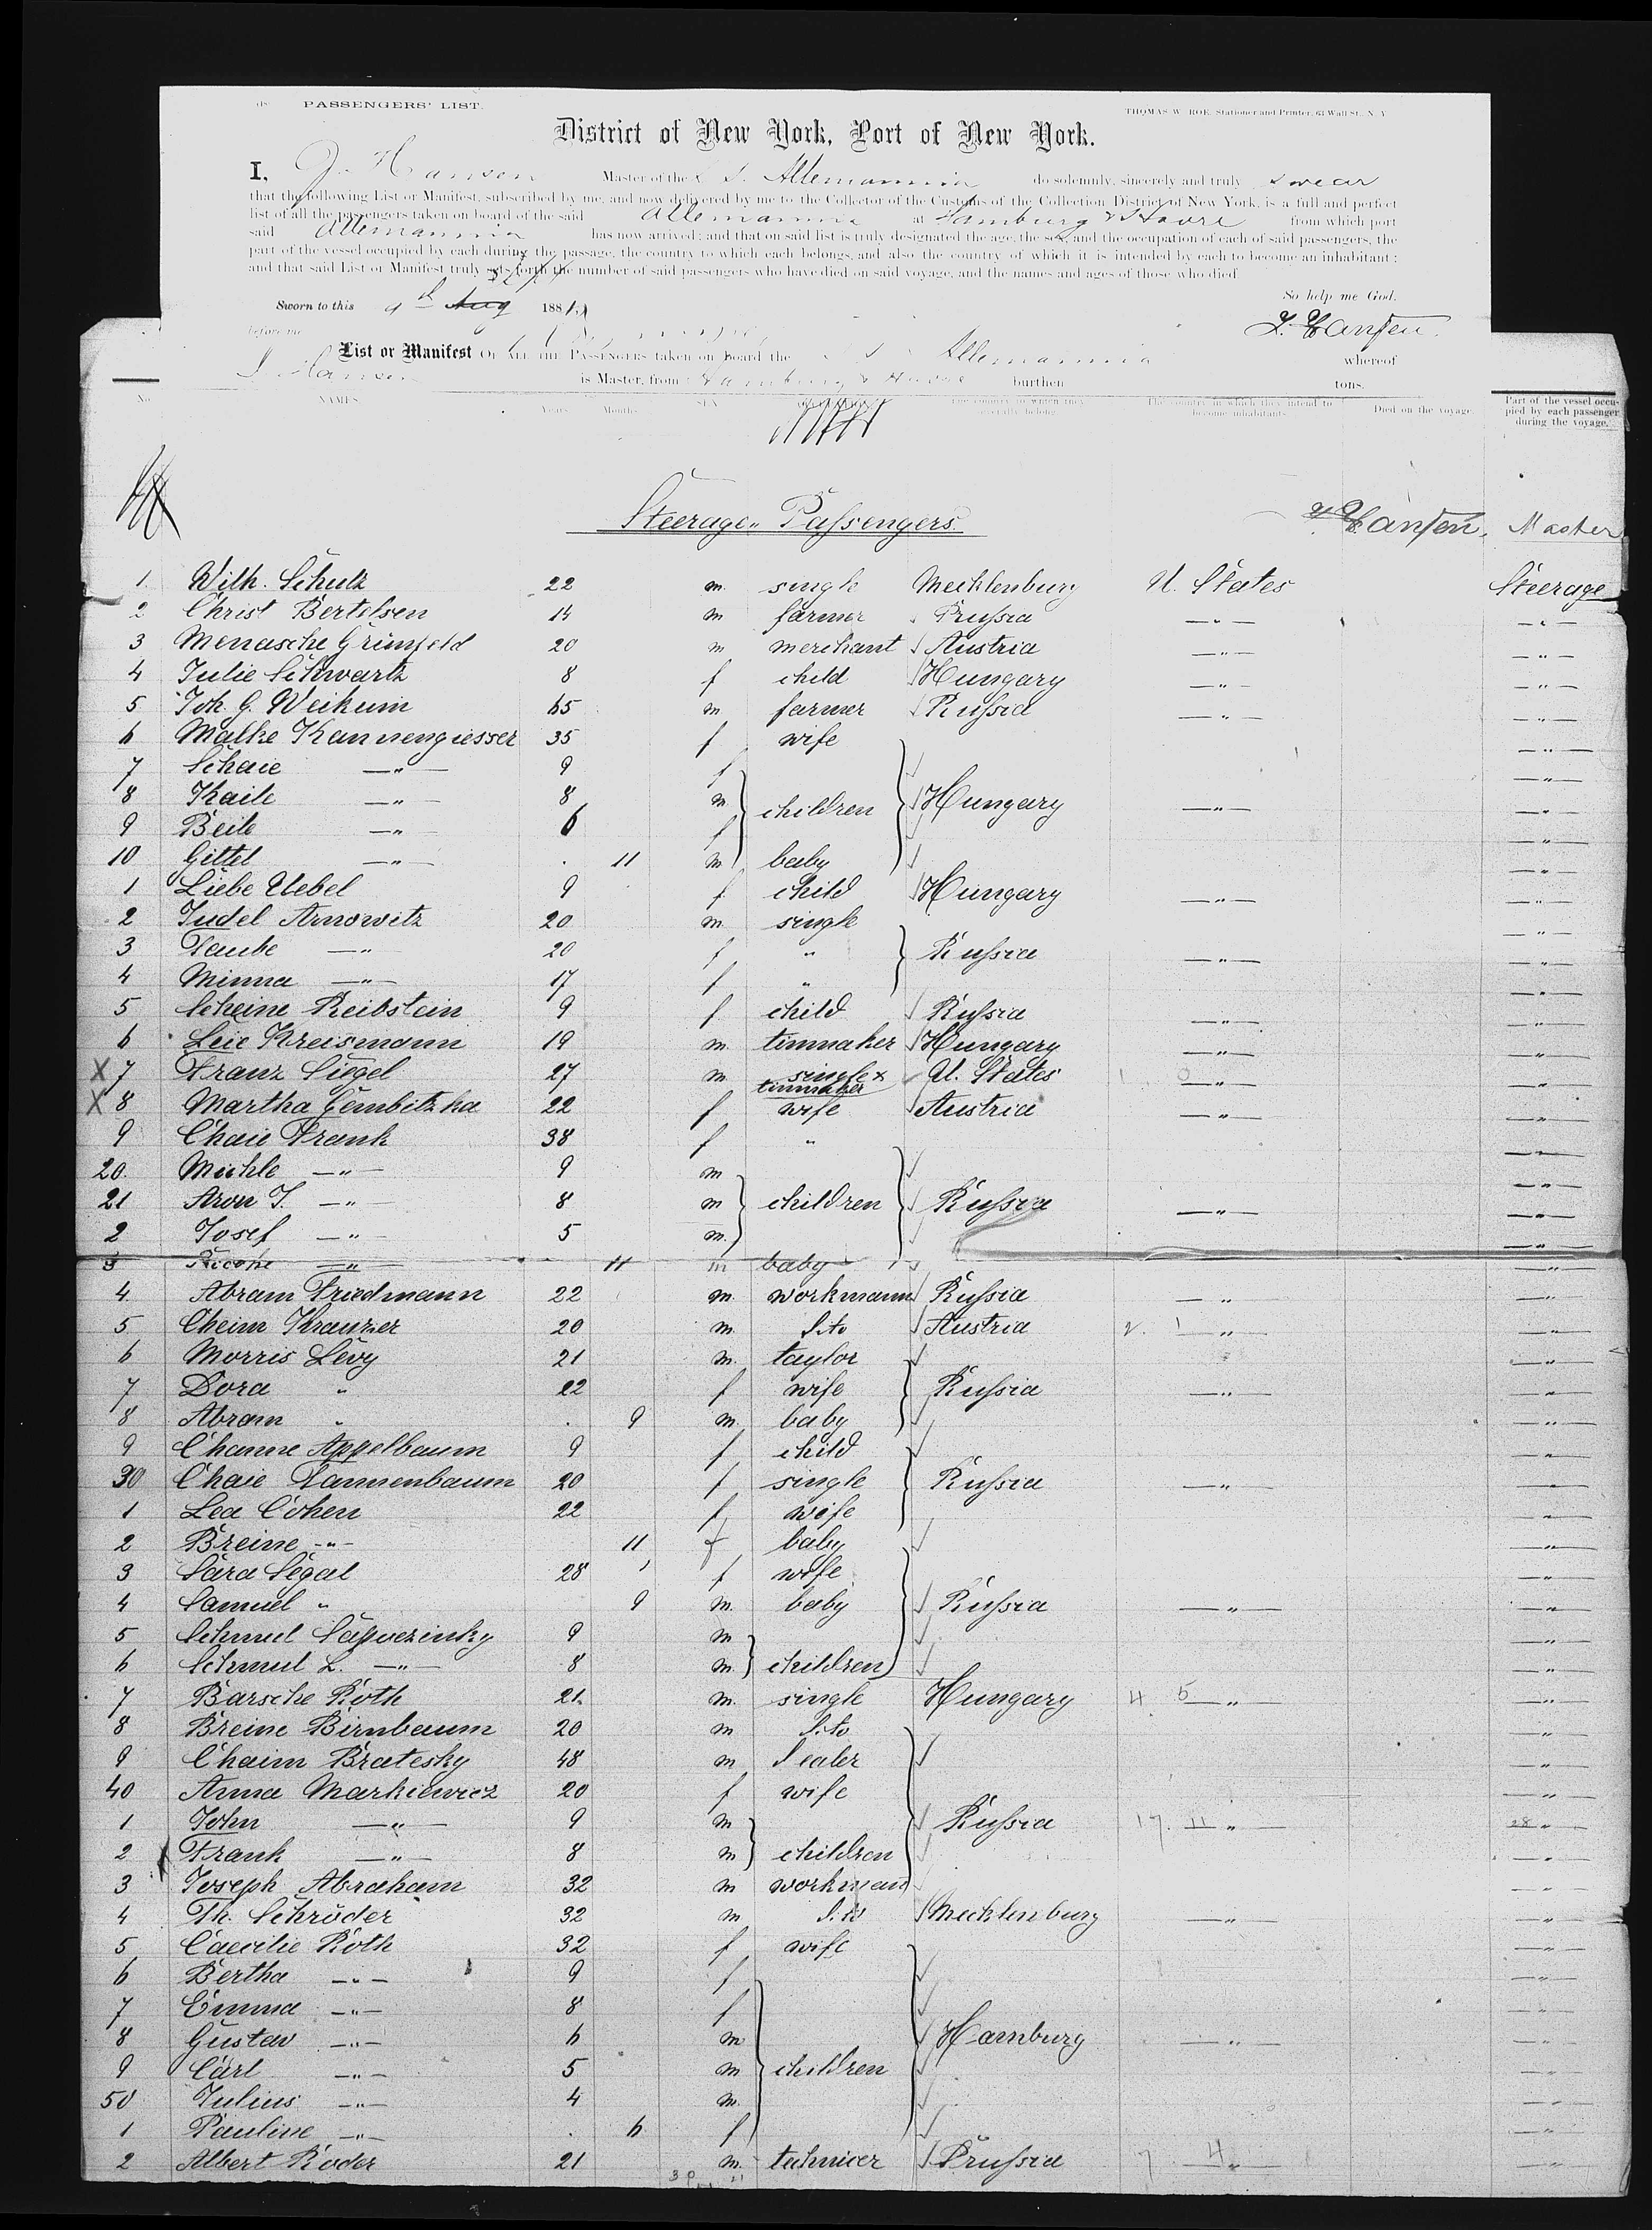 PASSENGERS' LIST.
THOMAS W. ROE, Stationer and Printer, 63 Wall St., N. Y.
District of New York, Port of New York.
I, J. Hansen Master of the S. S. Allemannia do solemnly, sincerely and truly swear
that the following List or Manifest, subscribed by me, and now delivered by me to the Collector of the Customs of the Collection District of New York, is a full and perfect
list of all the passengers taken on board of the said Allemannia at Hamburg & Havre from which port
said Allemannia has now arrived; and that on said list is truly designated the age, the sex, and the occupation of each of said passengers, the
part of the vessel occupied by each during the passage, the country to which each belongs, and also the country of which it is intended by each to become an inhabitant;
and that said List or Manifest truly sets forth the number of said passengers who have died on said voyage, and the names and ages of those who died.
So help me God.
Sworn to this 9th Aug 188
J. Hansen.
before me
List or Manifest OF ALL THE PASSENGERS taken on board the S. S. Allemannia whereof
J. Hansen is Master, from Hamburg & Havre burthen tons.
No. NAMES Years. Months. SEX OCCUPATION The country to which they severally belong. The country in which they intend to become inhabitants. Died on the voyage. Part of the vessel occupied by each passenger during the voyage.
Steerage Passengers.
J. Hansen, Master
1. Wilh. Schulz 22 m. single Mecklenburg U. States Steerage
2 Christ Bertelsen 14 m farmer Prussia —"— —"—
3 Menasche Grünfeld 20 m merchant Austria —"— —"—
4 Julie Schwartz 8 f child Hungary —"— —"—
5 Joh. G. Weikum 65 m farmer Russia —"— —"—
6 Malke Kannengiesser 35 f wife —"—
7 Schaie —"— 9 f —"—
8 Kaile —"— 8 m children Hungary —"— —"—
9 Beile —"— 6 f —"—
10 Gittel —"— 11 m baby —"—
1 Liebe Uebel 9 f child Hungary —"— —"—
2 Judel Arnowitz 20 m single —"—
3 Taube —"— 20 f " Russia —"— —"—
4 Minna —"— 17 f " —"—
5 Scheine Reibstein 9 f child Russia —"— —"—
6 Leie Kreismann 19 m. tinmaker Hungary —"— —"—
X 7 Franz Siegel 27 m single x tinmaker U. States —"— —"—
X 8 Martha Gembitzka 22 f wife Austria —"— —"—
9 Chaie Frank 38 f " —"—
20. Michle —"— 9 m —"—
21 Aron J. —"— 8 m children Russia —"— —"—
2 Josef —"— 5 m. —"—
3 —"— 11 m baby —"—
4 Abram Friedmann 22 m. workmann Russia —"— —"—
5 Cheim Krauzer 20 m. dito Austria —"— —"—
6 Morris Levy 21 m. taylor —"—
7 Dora " 22 f wife Russia —"— —"—
8 Abram " 9 m. baby —"—
9 Channe Appelbaum 9 f child —"—
30 Chaie Tannenbaum 20 f single Russia —"— —"—
1 Lea Cohen 22 f wife —"—
2 Breine —"— 11 f baby —"—
3 Sara Segal 28 f wife —"—
4 Samuel " 9 m. baby Russia —"— —"—
5 Schmul 9 m —"—
6 Schmul L. —"— 8 m. children —"—
7 Barsche Roth 21 m. single Hungary 4 5 —"— —"—
8 Breine Birnbaum 20 m dito —"—
9 Chaim Bratesky 48 m dealer —"—
40 Anna Markiewicz 20 f wife —"—
1 John —"— 9 m Russia 17. 11 —"— —"—
2 Frank —"— 8 m children —"—
3 Joseph Abraham 32 m workman —"—
4 Th. Schröder 32 m dito Mecklenburg —"— —"—
5 Caecilie Roth 32 f wife —"—
6 Bertha —"— 9 f —"—
7 Emma —"— 8 f —"—
8 Gustav —"— 6 m Hamburg —"— —"—
9 Carl —"— 5 m children —"—
50 Julius —"— 4 m. —"—
1 Pauline —"— 6 f —"—
2 Albert Roder 21 m. technicer Prussia 7 4 —"— —"—